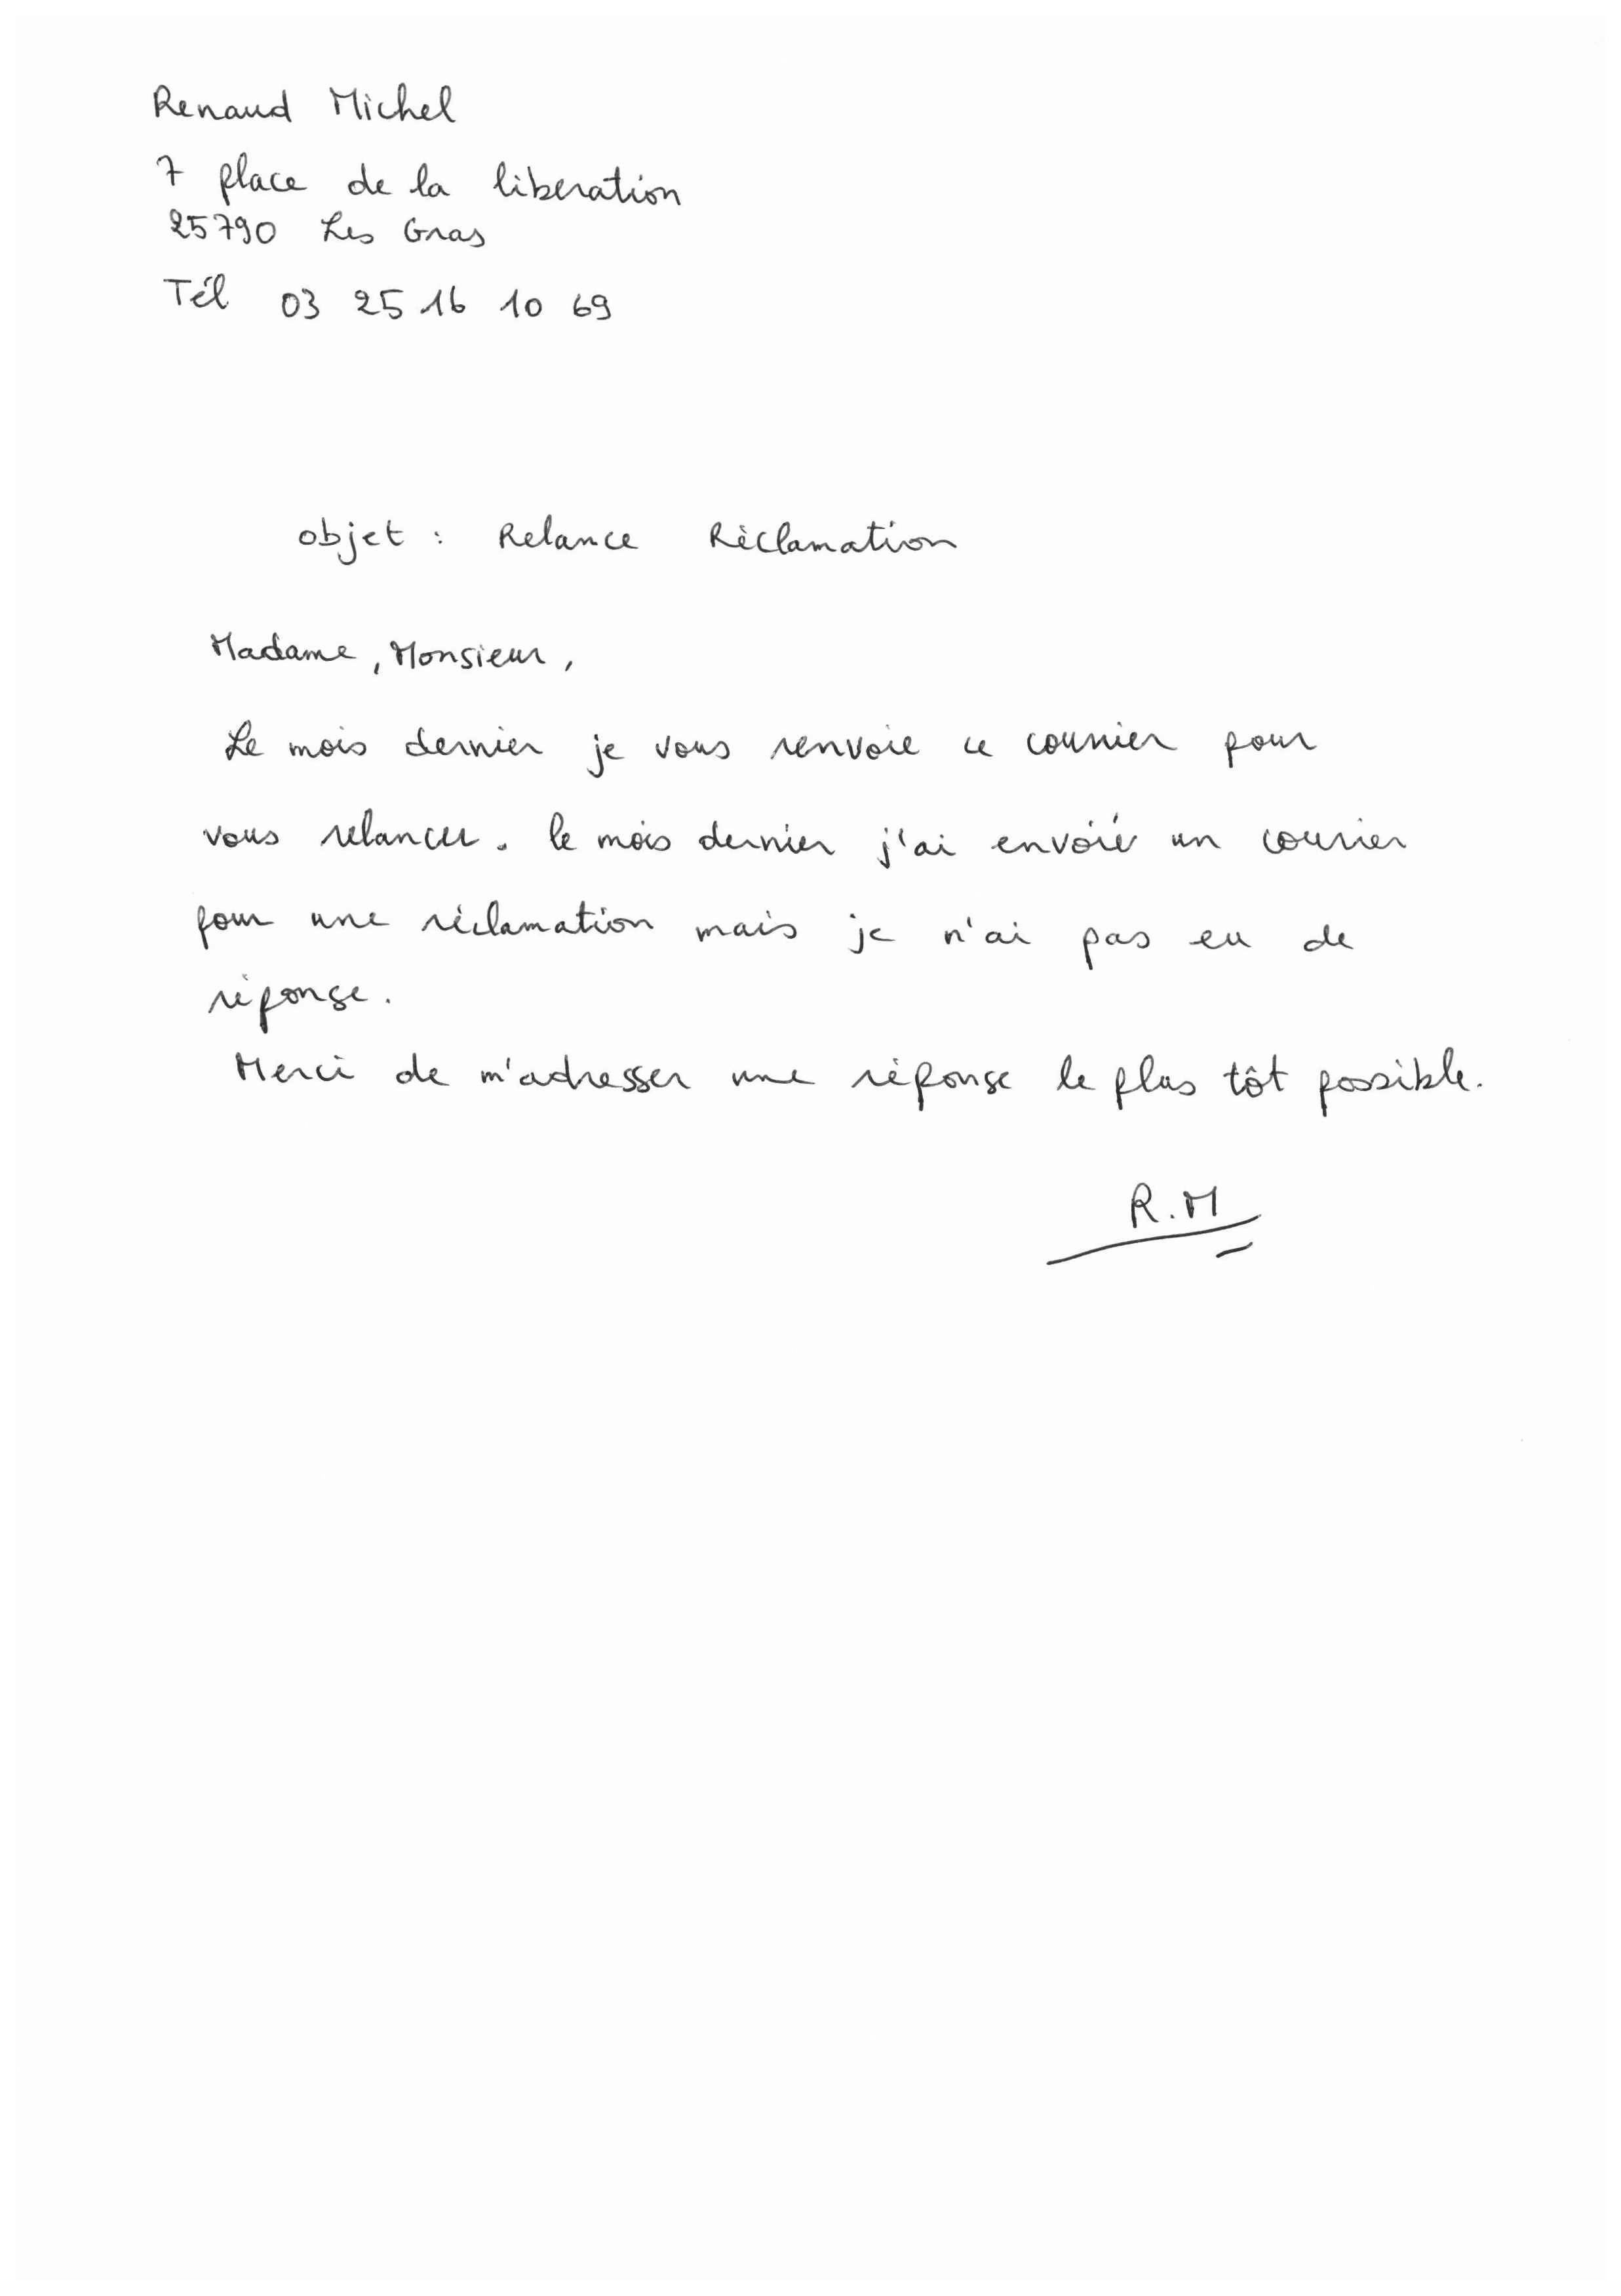 Renaud Michel
7 place de la liberation
25790 Les Gras
Tél 03 25 16 10 69
objet : Relance Réclamation
Madame, Monsieur,
Le mois dernier je vous renvoie ce courrier pour
vous relancer. le mois dernier j'ai envoié un courrier
pour une réclamation mais je n'ai pas eu de
réponse.
Merci de m'adresser une réponse le plus tôt possible.
R.M